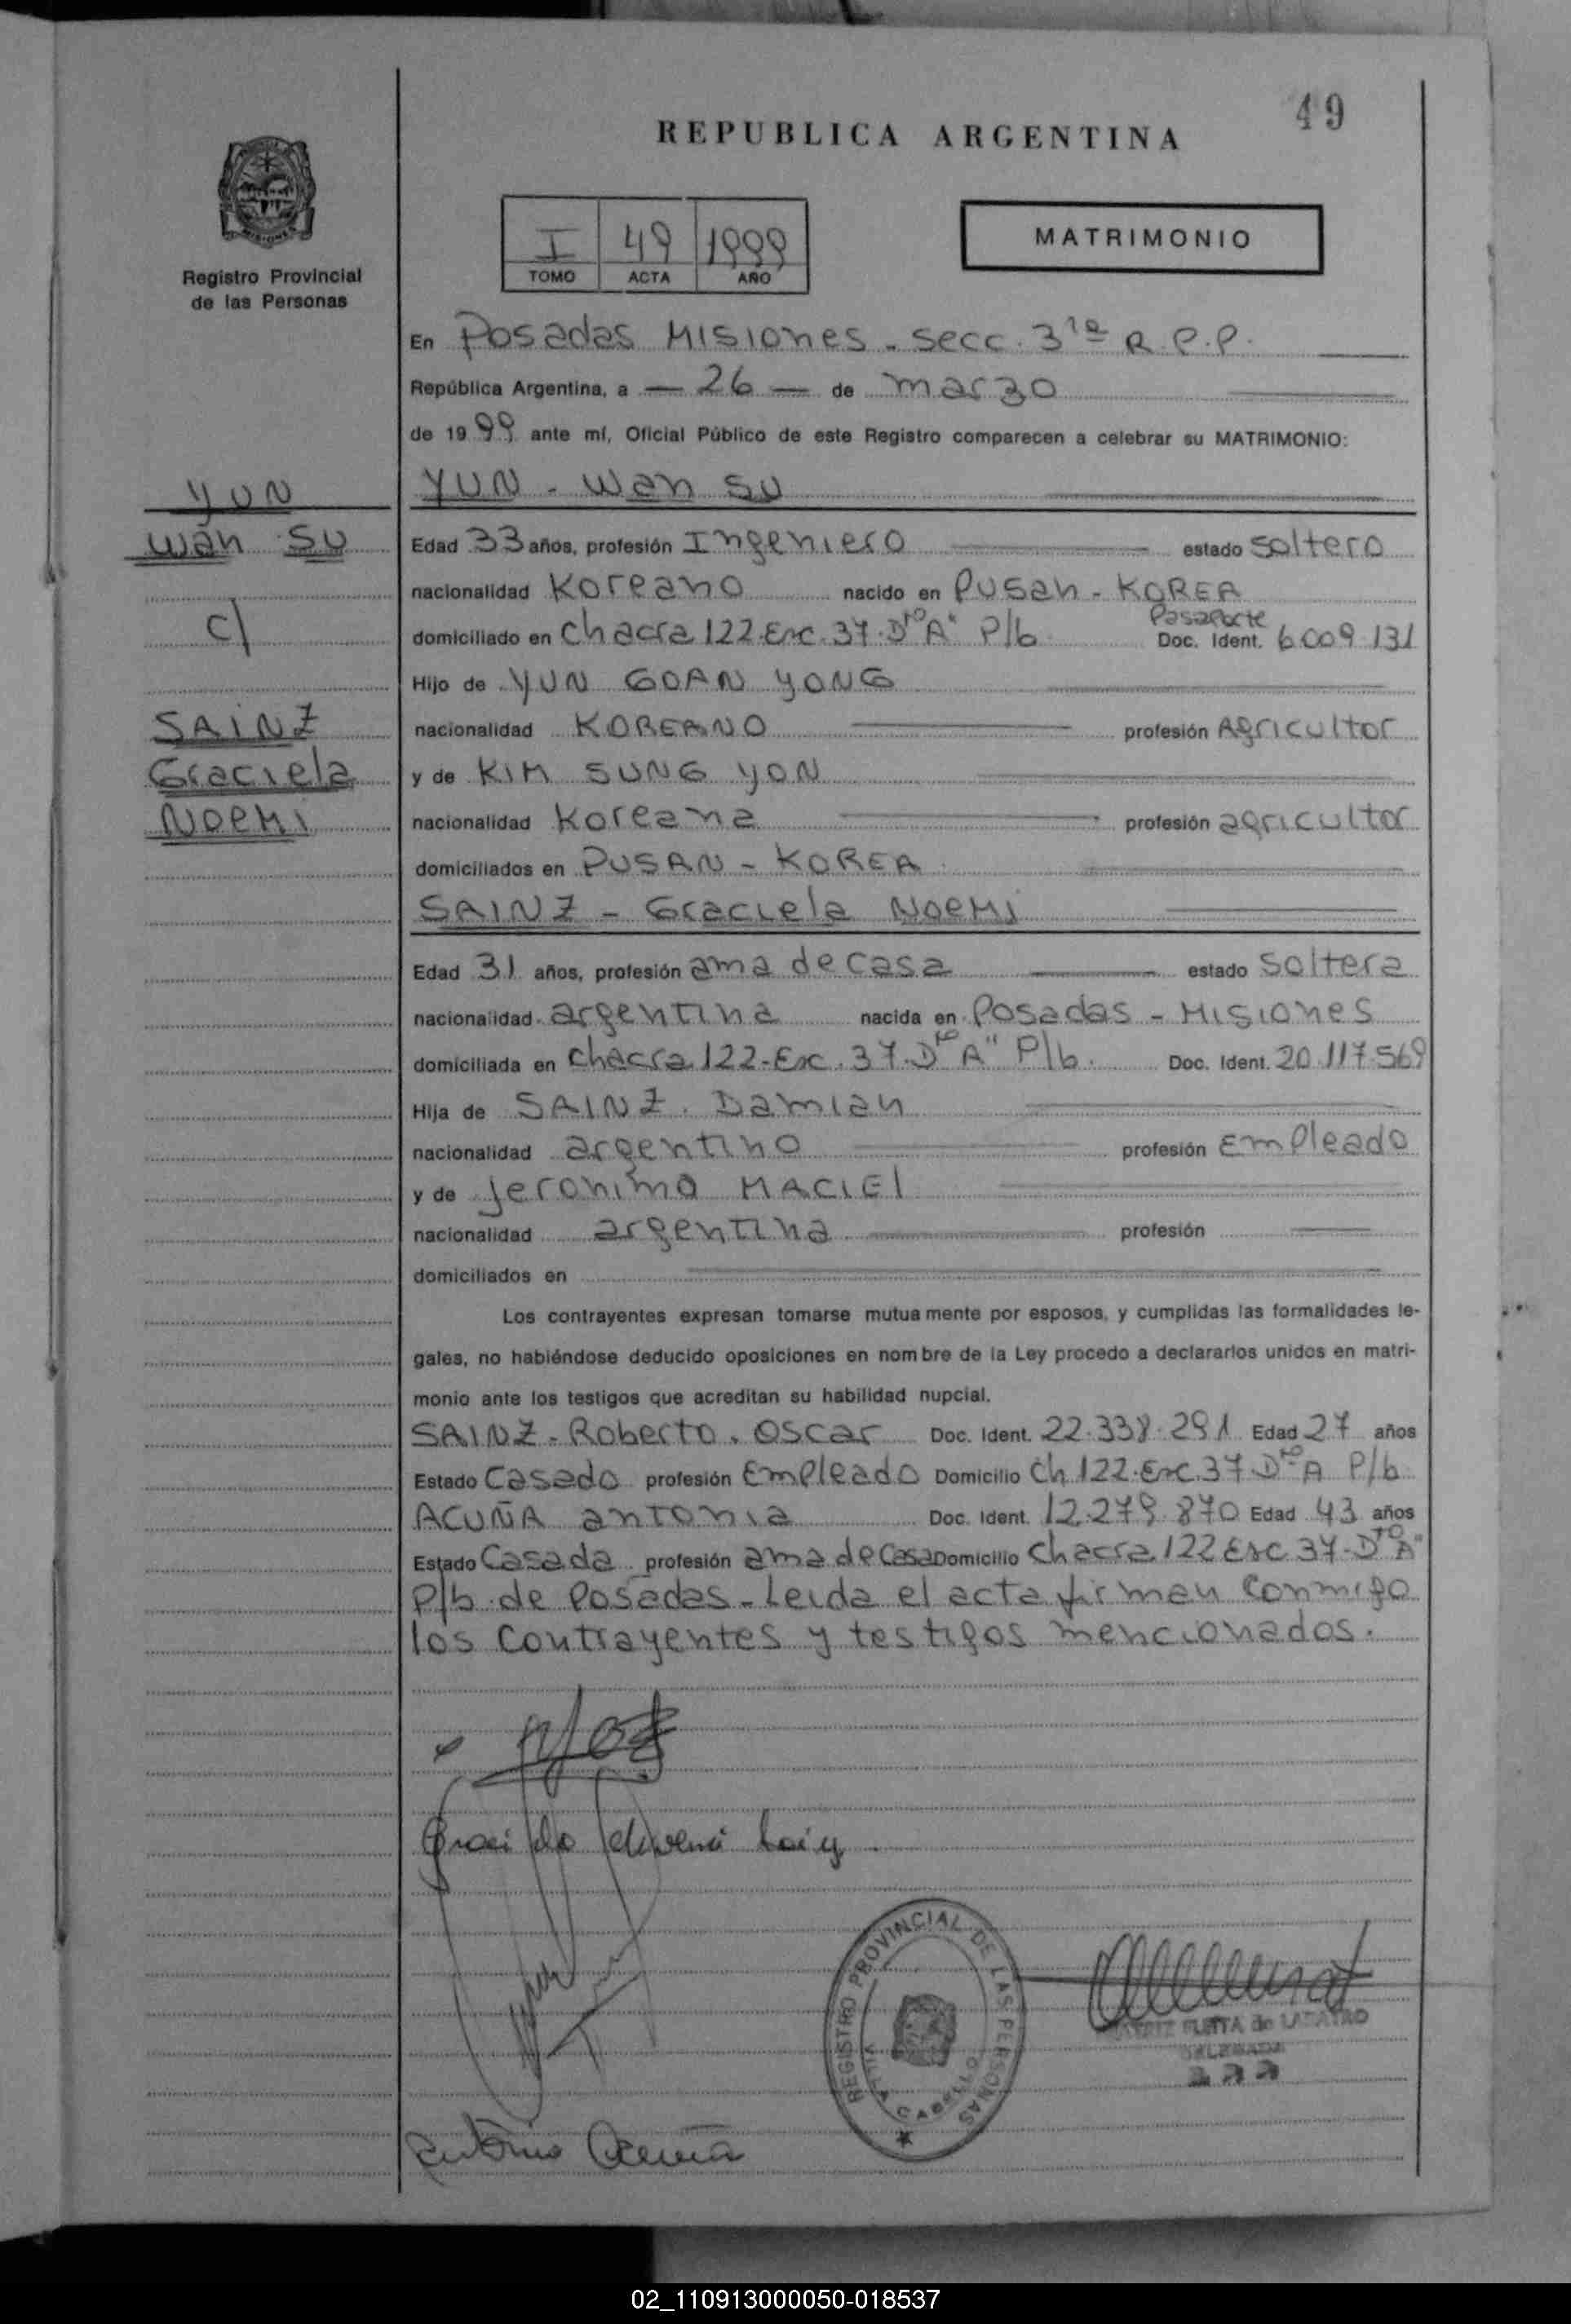 49
REPUBLICA ARGENTINA
MATRIMONIO
I 49 1999
TOMO ACTA AÑO
Registro Provincial
de las Personas
En Posadas Misiones - secc. 3ra R.P.P.
República Argentina, a — 26 — de marzo
de 1999 ante mí, Oficial Público de este Registro comparecen a celebrar su MATRIMONIO:
YUN
Wan SU
c/
SAINZ
Graciela
NOEMI
YUN - Wan SU
Edad 33 años, profesión Ingeniero estado soltero
nacionalidad Koreano nacido en PUSAN - KOREA
Pasaporte
domiciliado en Chacra 122-Esc. 37-Dto "A" P/b Doc. Ident. 6009131
Hijo de YUN GOAN YONG
nacionalidad KOREANO profesión Agricultor
y de KIM SUNG YON
nacionalidad Koreana profesión agricultor
domiciliados en PUSAN - KOREA
SAINZ - Graciela NOEMI
Edad 31 años, profesión ama de casa estado soltera
nacionalidad argentina nacida en Posadas - Misiones
domiciliada en Chacra 122-Esc. 37-Dto "A" P/b. Doc. Ident. 20.117.569
Hija de SAINZ. Damian
nacionalidad argentino profesión Empleado
y de jeronima MACIEl
nacionalidad argentina profesión
domiciliados en
Los contrayentes expresan tomarse mutuamente por esposos, y cumplidas las formalidades le-
gales, no habiéndose deducido oposiciones en nombre de la Ley procedo a declararlos unidos en matri-
monio ante los testigos que acreditan su habilidad nupcial.
SAINZ - Roberto. Oscar Doc. Ident. 22.338.291 Edad 27 años
Estado Casado profesión Empleado Domicilio Ch 122-Esc. 37 Dto A P/b
ACUÑA antonia Doc. Ident. 12.279.870 Edad 43 años
Estado Casada profesión ama de Casa Domicilio Chacra 122 Esc 37-Dto "A"
P/b de Posadas - Leida el acta firman conmigo
los contrayentes y testigos mencionados.
REGISTRO PROVINCIAL DE LAS PERSONAS
VILLA CABELLO
de LABATRO
DELEGADA
Antonia Acuña
02_110913000050-018537